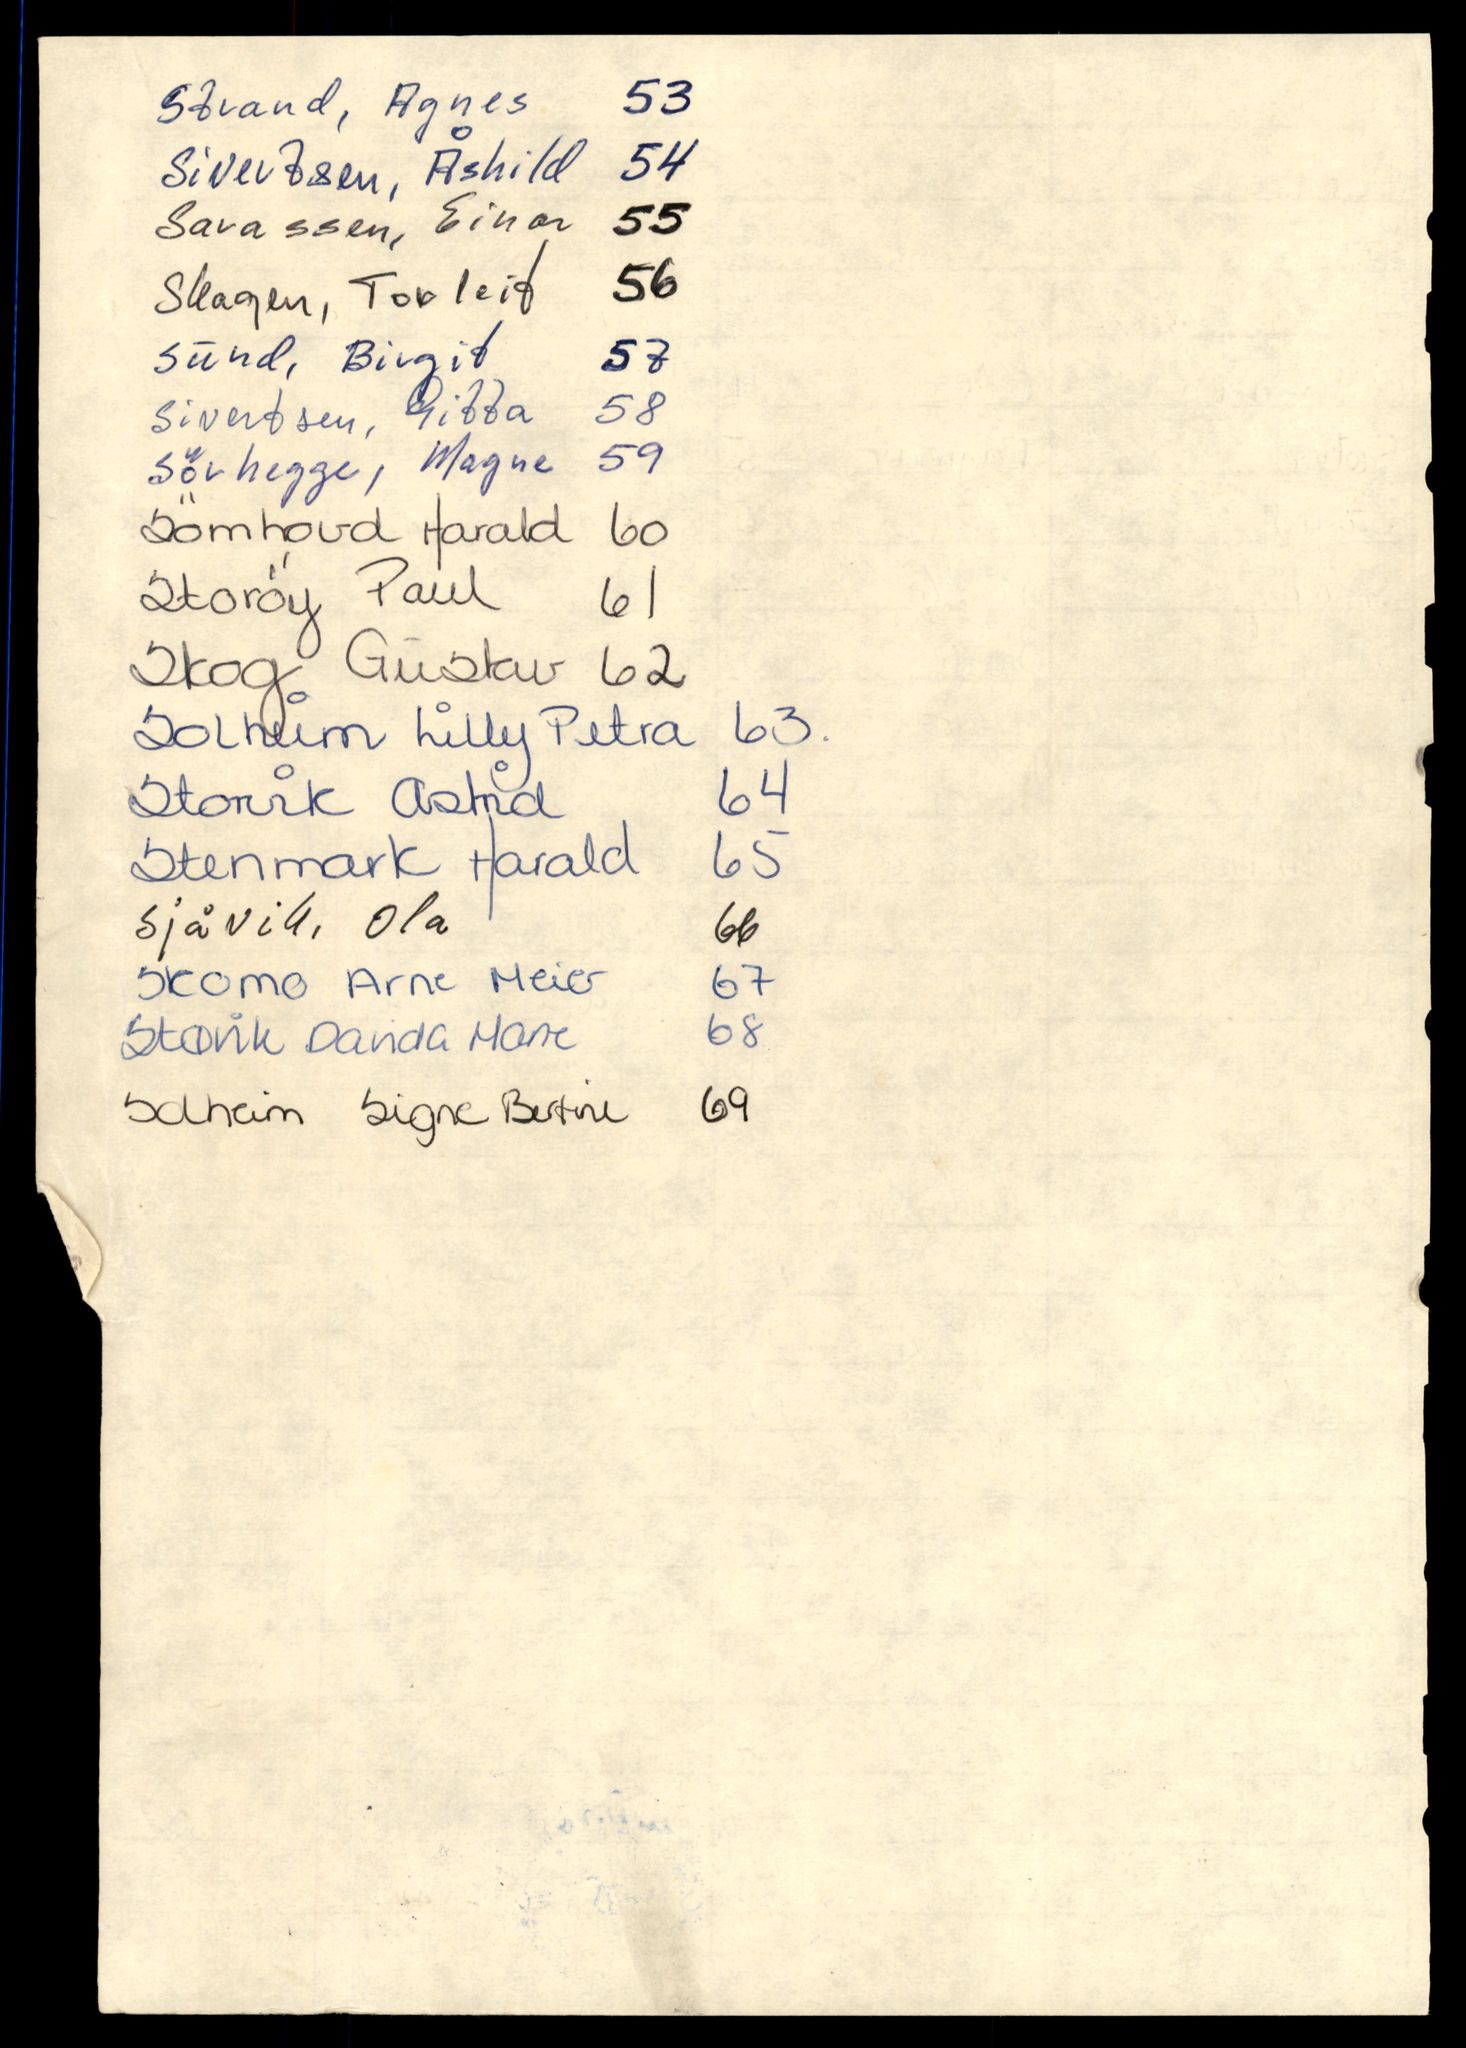 Strand, Agnes 53
Sivertsen, Åshild 54
Sarassen, Einar 55
Skagen, Torleif 56
Sund, Birgit 57
Sivertsen, Gitta 58
Sörhegge, Magne 59
Sömhovd Harald 60
Storöy Paul 61
Skog Gustav 62
Solheim Lilly Petra 63.
Storvik Astrid 64
Stenmark Harald 65
Sjåvik, Ola 66
Skomo Arne Meier 67
Storvik Davida Marie 68
Solheim Signe Bertine 69